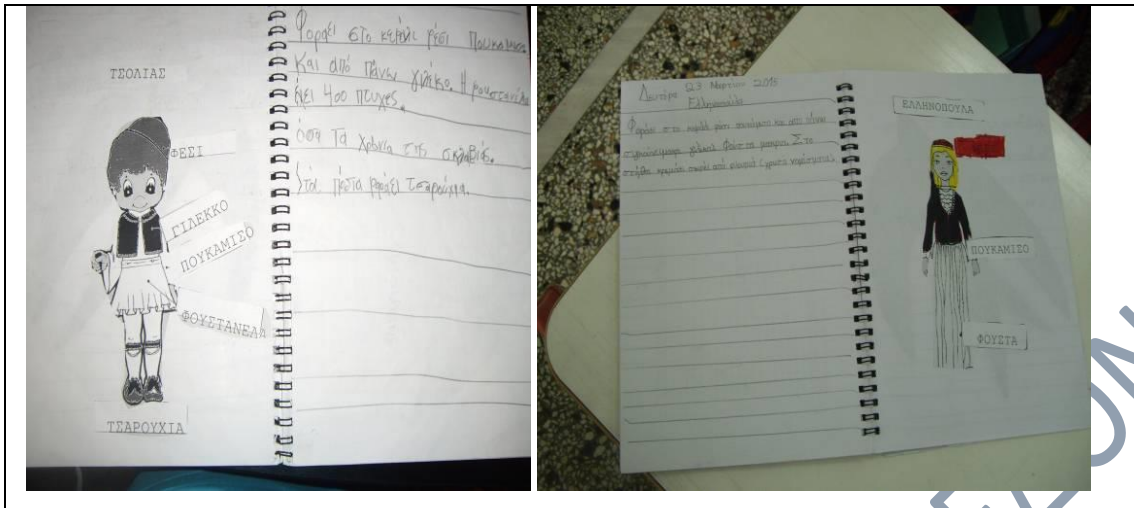 ΤΣΟΛΙΑΣ
ΦΕΣΙ
ΓΙΛΕΚΚΟ
ΠΟΥΚΑΜΙΣΟ
ΦΟΥΣΤΑΝΕΛΑ
ΤΣΑΡΟΥΧΙΑ
Φοράει στο κεφάλι φέσι
Και από πάνω γιλέκο. Η φουστανέλα
έχει 400 πτυχές.
όσα τα χρόνια της σκλαβιάς.
Στα πόδια φοράει τσαρούχια.
Δευτέρα 23 Μαρτίου 2015
Ελληνοπούλα
Φοράει στο κεφάλι φέσι πουκάμισο και από πάνω
Φούστα μακριά Στο
στήθος από φλουριά
ΕΛΛΗΝΟΠΟΥΛΑ
ΠΟΥΚΑΜΙΣΟ
ΦΟΥΣΤΑ